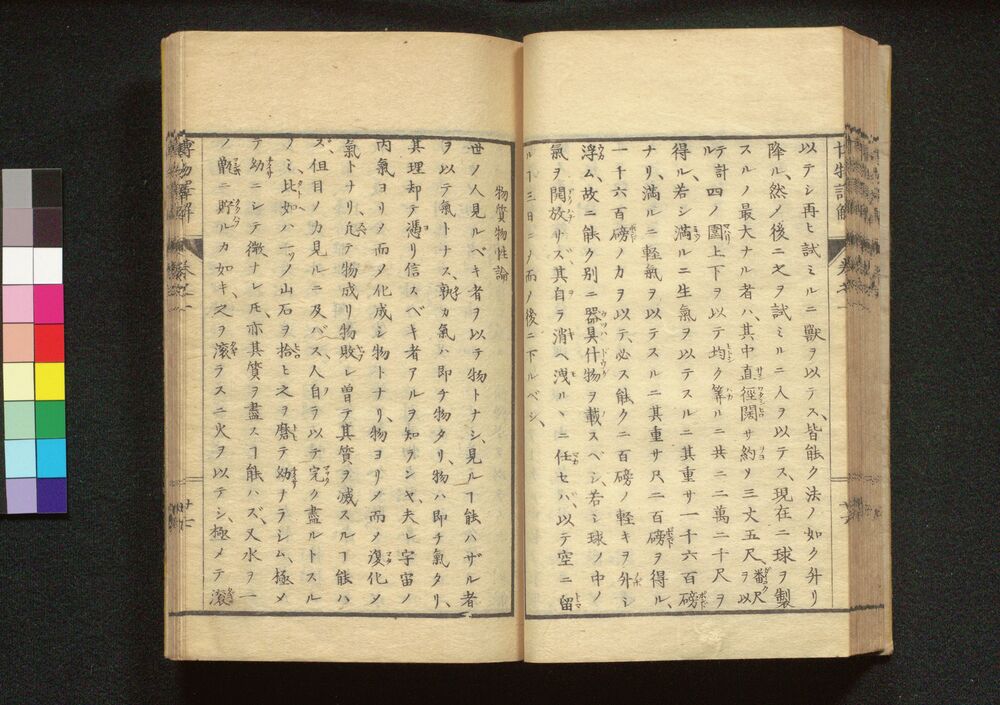 以テシ再ヒ試ミルニ獸ヲ以テス、皆能ク法ノ如ク升リ
降ル、然ノ後ニ之ヲ試ミルニ人ヲ以テス、現在ニ球ヲ製
スルノ最大ナル者ハ、其中直徑闊サ約ソ三丈五尺、番尺ヲ以
テ計ル四ノ圍上下ヲ以テ均ク算ルニ共ニ二萬二十尺ヲ
得ル、若シ滿ルニ生氣ヲ以テスルニ其重サ一千六百磅
ナリ、滿ルニ輕氣ヲ以テスルニ其重サ尺ニ百磅ヲ得ル、
一千六百磅ノ力ヲ以テ、必ス能クニ百磅ノ軽キヲ外シ
浮ム、故ニ能ク別ニ器具什物ヲ載スベシ、若シ球ノ中ノ
氣ヲ開放サズ、其自ラ消ヘ洩ルヽニ任セバ、以テ空ニ留
ルヿ三日ニヲ而ノ後ニ下ルベシ、
物質物性論
世ノ人見ルベキ者ヲ以テ物トナシ、見ルヿ能ハザル者
ヲ以テ氣トナス、孰カ氣ハ即チ物タリ、物ハ即チ氣タリ、
其理却テ憑リ信スベキ者アルヲ知ランヤ、夫レ宇宙ノ
内氣ヨリメ而メ化成シ物トナリ、物ヨリメ而メ復化メ
氣トナリ、凡テ物成リ物敗レ曽テ其質ヲ滅スルヿ能ハ
ズ、但目ノ力見ルニ及バス、人自ラ以テ完ク盡ルトスル
ノミ、比如ハ一ツノ山石ヲ拾ヒ之ヲ磨テ幼ナラシム、極メ
テ幼ニシテ微ナレ𪜈、亦其質ヲ盡スヿ能ハズ、又水ヲ一
ノ鼎ニ貯ルカ如キ、之ヲ滾ラスニ火ヲ以テシ、極メテ滾
博物畧解
巻之一